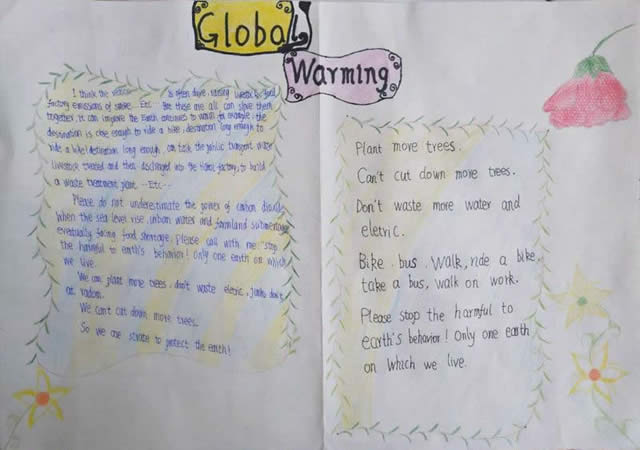 Global
Warming
I think the reason is often drive, raising livestock, food
factory emissions of smoke... Etc. But these are all can solve them
together, it can improve the Earth continues to warm for example: the
destination is close enough to ride a bike; destination long enough to
ride a bike! destination long enough, can take the public transport. water
livestock treated and then discharged into the factory, to build
a waste treatment plant...Etc...
Please do not underestimate the power of carbon dioxide
When the sea level rise, urban water and farmland submerged
eventually facing food shortage. Please call with me "stop
the harmful to earth's behavior! Only one earth on which
we live.
We can plant more trees, don't waste eletric, junks don't
at radom.
We can't cut down more trees.
So we are to protect the earth!
Plant more trees.
Can't cut down more trees.
Don't waste more water and
eletric.
Bike, bus, walk, ride a bike,
take a bus, walk on work.
Please stop the harmful to
earth's behavior! Only one earth
on which we live.